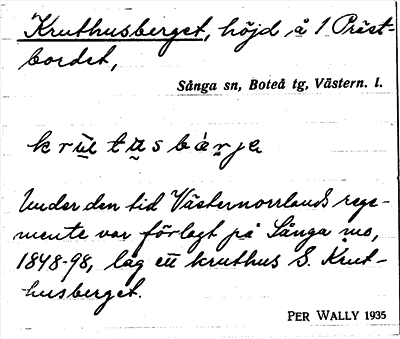 Kruthusberget, höjd å 1 Präst-
bordet,
Sånga sn, Boteå tg, Västern. l.
krutusbärje
Under den tid Västernorrlands rege-
mente var förlagt på Sånga mo,
1848-98, låg ett kruthus S. Krut-
husberget.
PER WALLY 1935